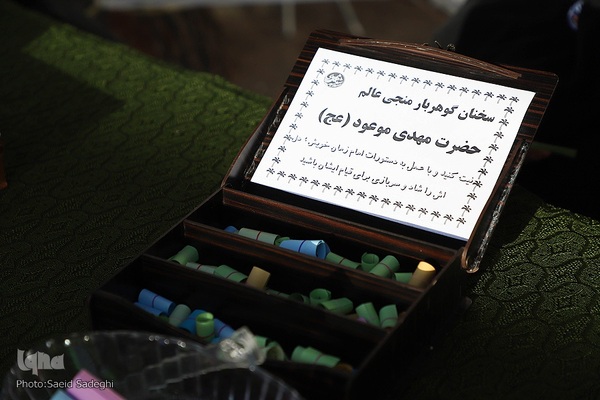 سخنان گوهربار منجی عالم
حضرت مهدی موعود (عج)
نیت کنید و با عمل به دستورات امام زمان خویش، دل
اش را شاد و سربازی برای قیام ایشان باشید
iqna
Photo:Saeid Sadeghi